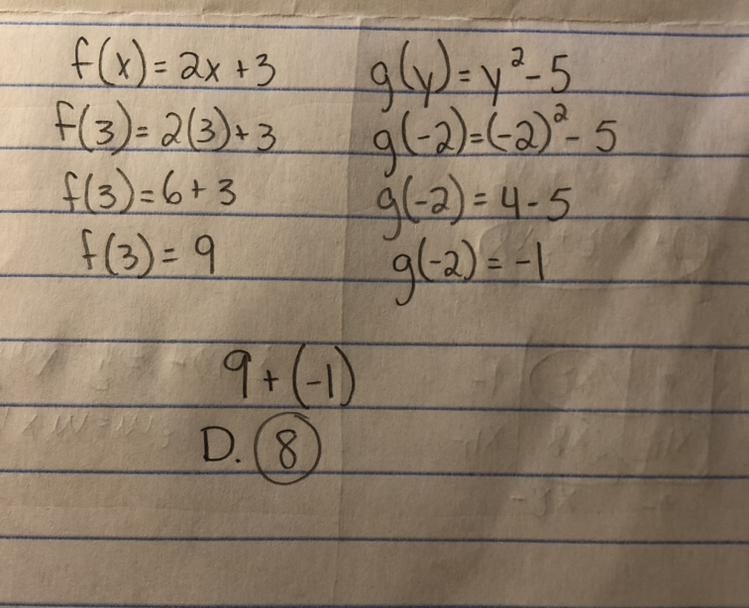 f(x) = 2x + 3
f(3) = 2(3) + 3
f(3) = 6 + 3
f(3) = 9
g(y) = y² - 5
g(-2) = (-2)² - 5
g(-2) = 4 - 5
g(-2) = -1
9 + (-1)
D. 8